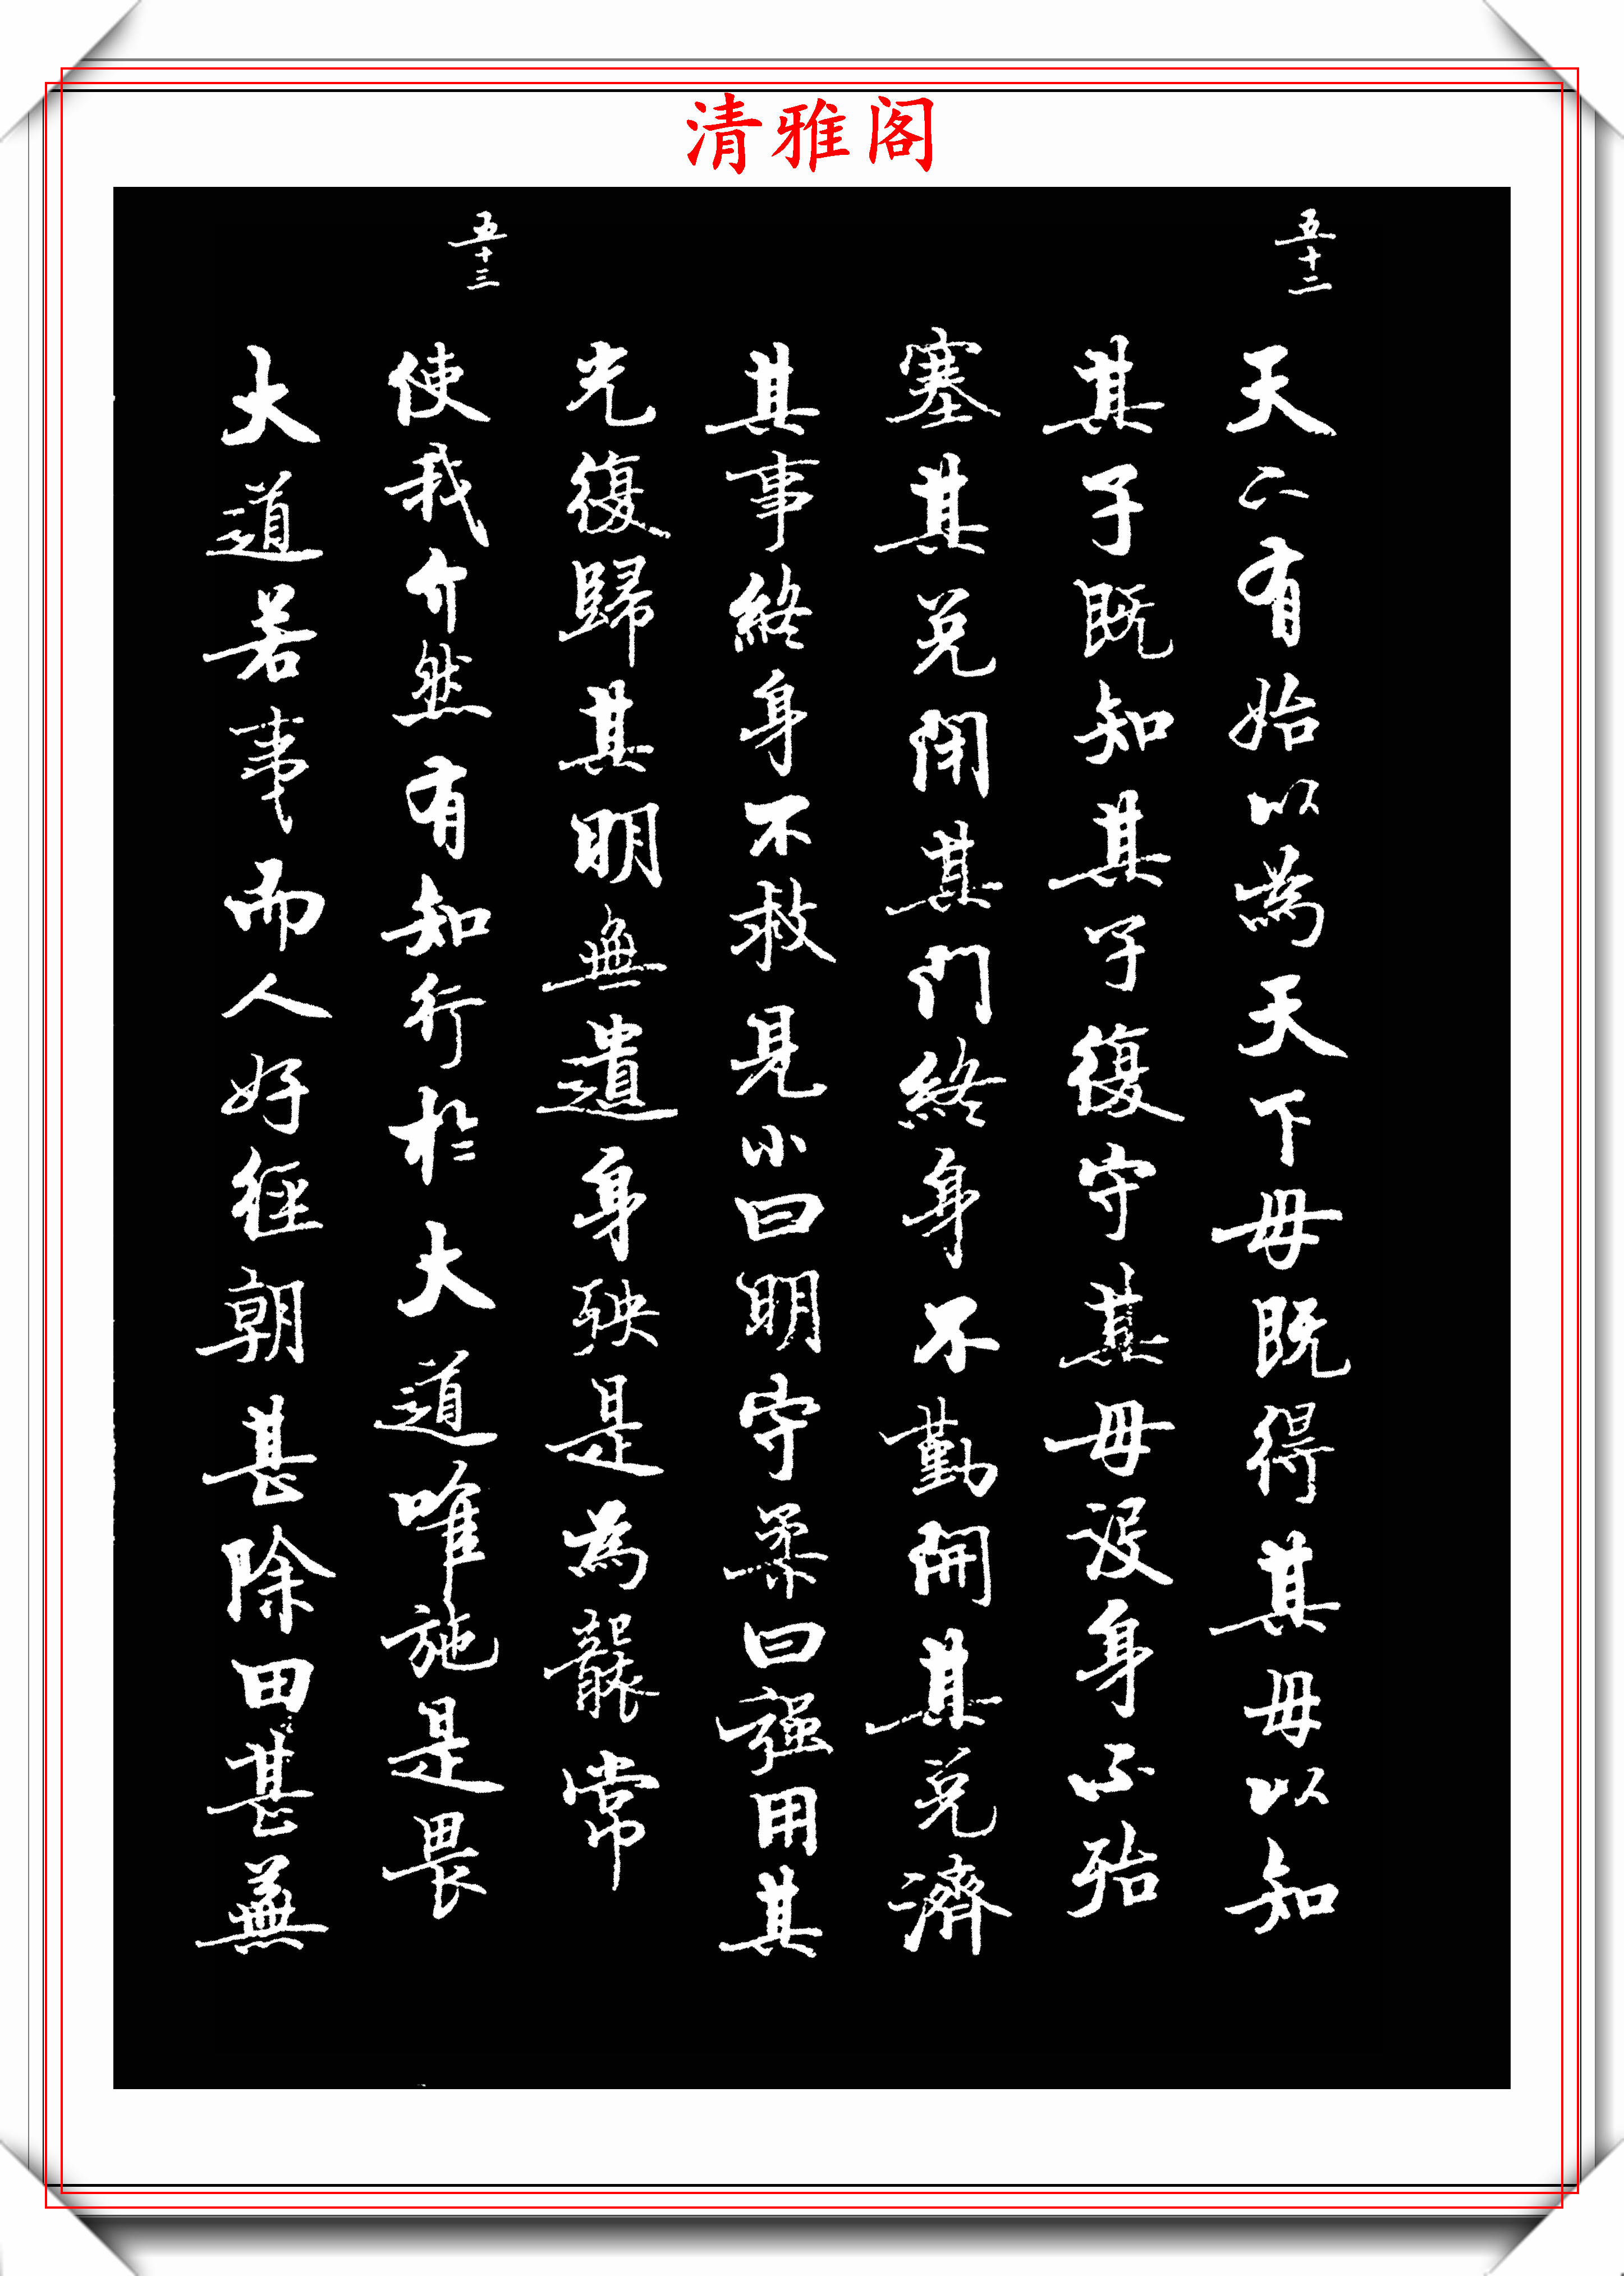 清雅阁
五十二
天下有始以為天下母既得其母以知
其子既知其子復守其母没身不殆
塞其兑閉其門終身不勤開其兑濟
其事終身不救見小曰明守柔曰强用其
光復歸其明無遺身殃是為襲常
五十三
使我介然有知行於大道唯施是畏
大道若事而人好徑朝甚除田甚蕪